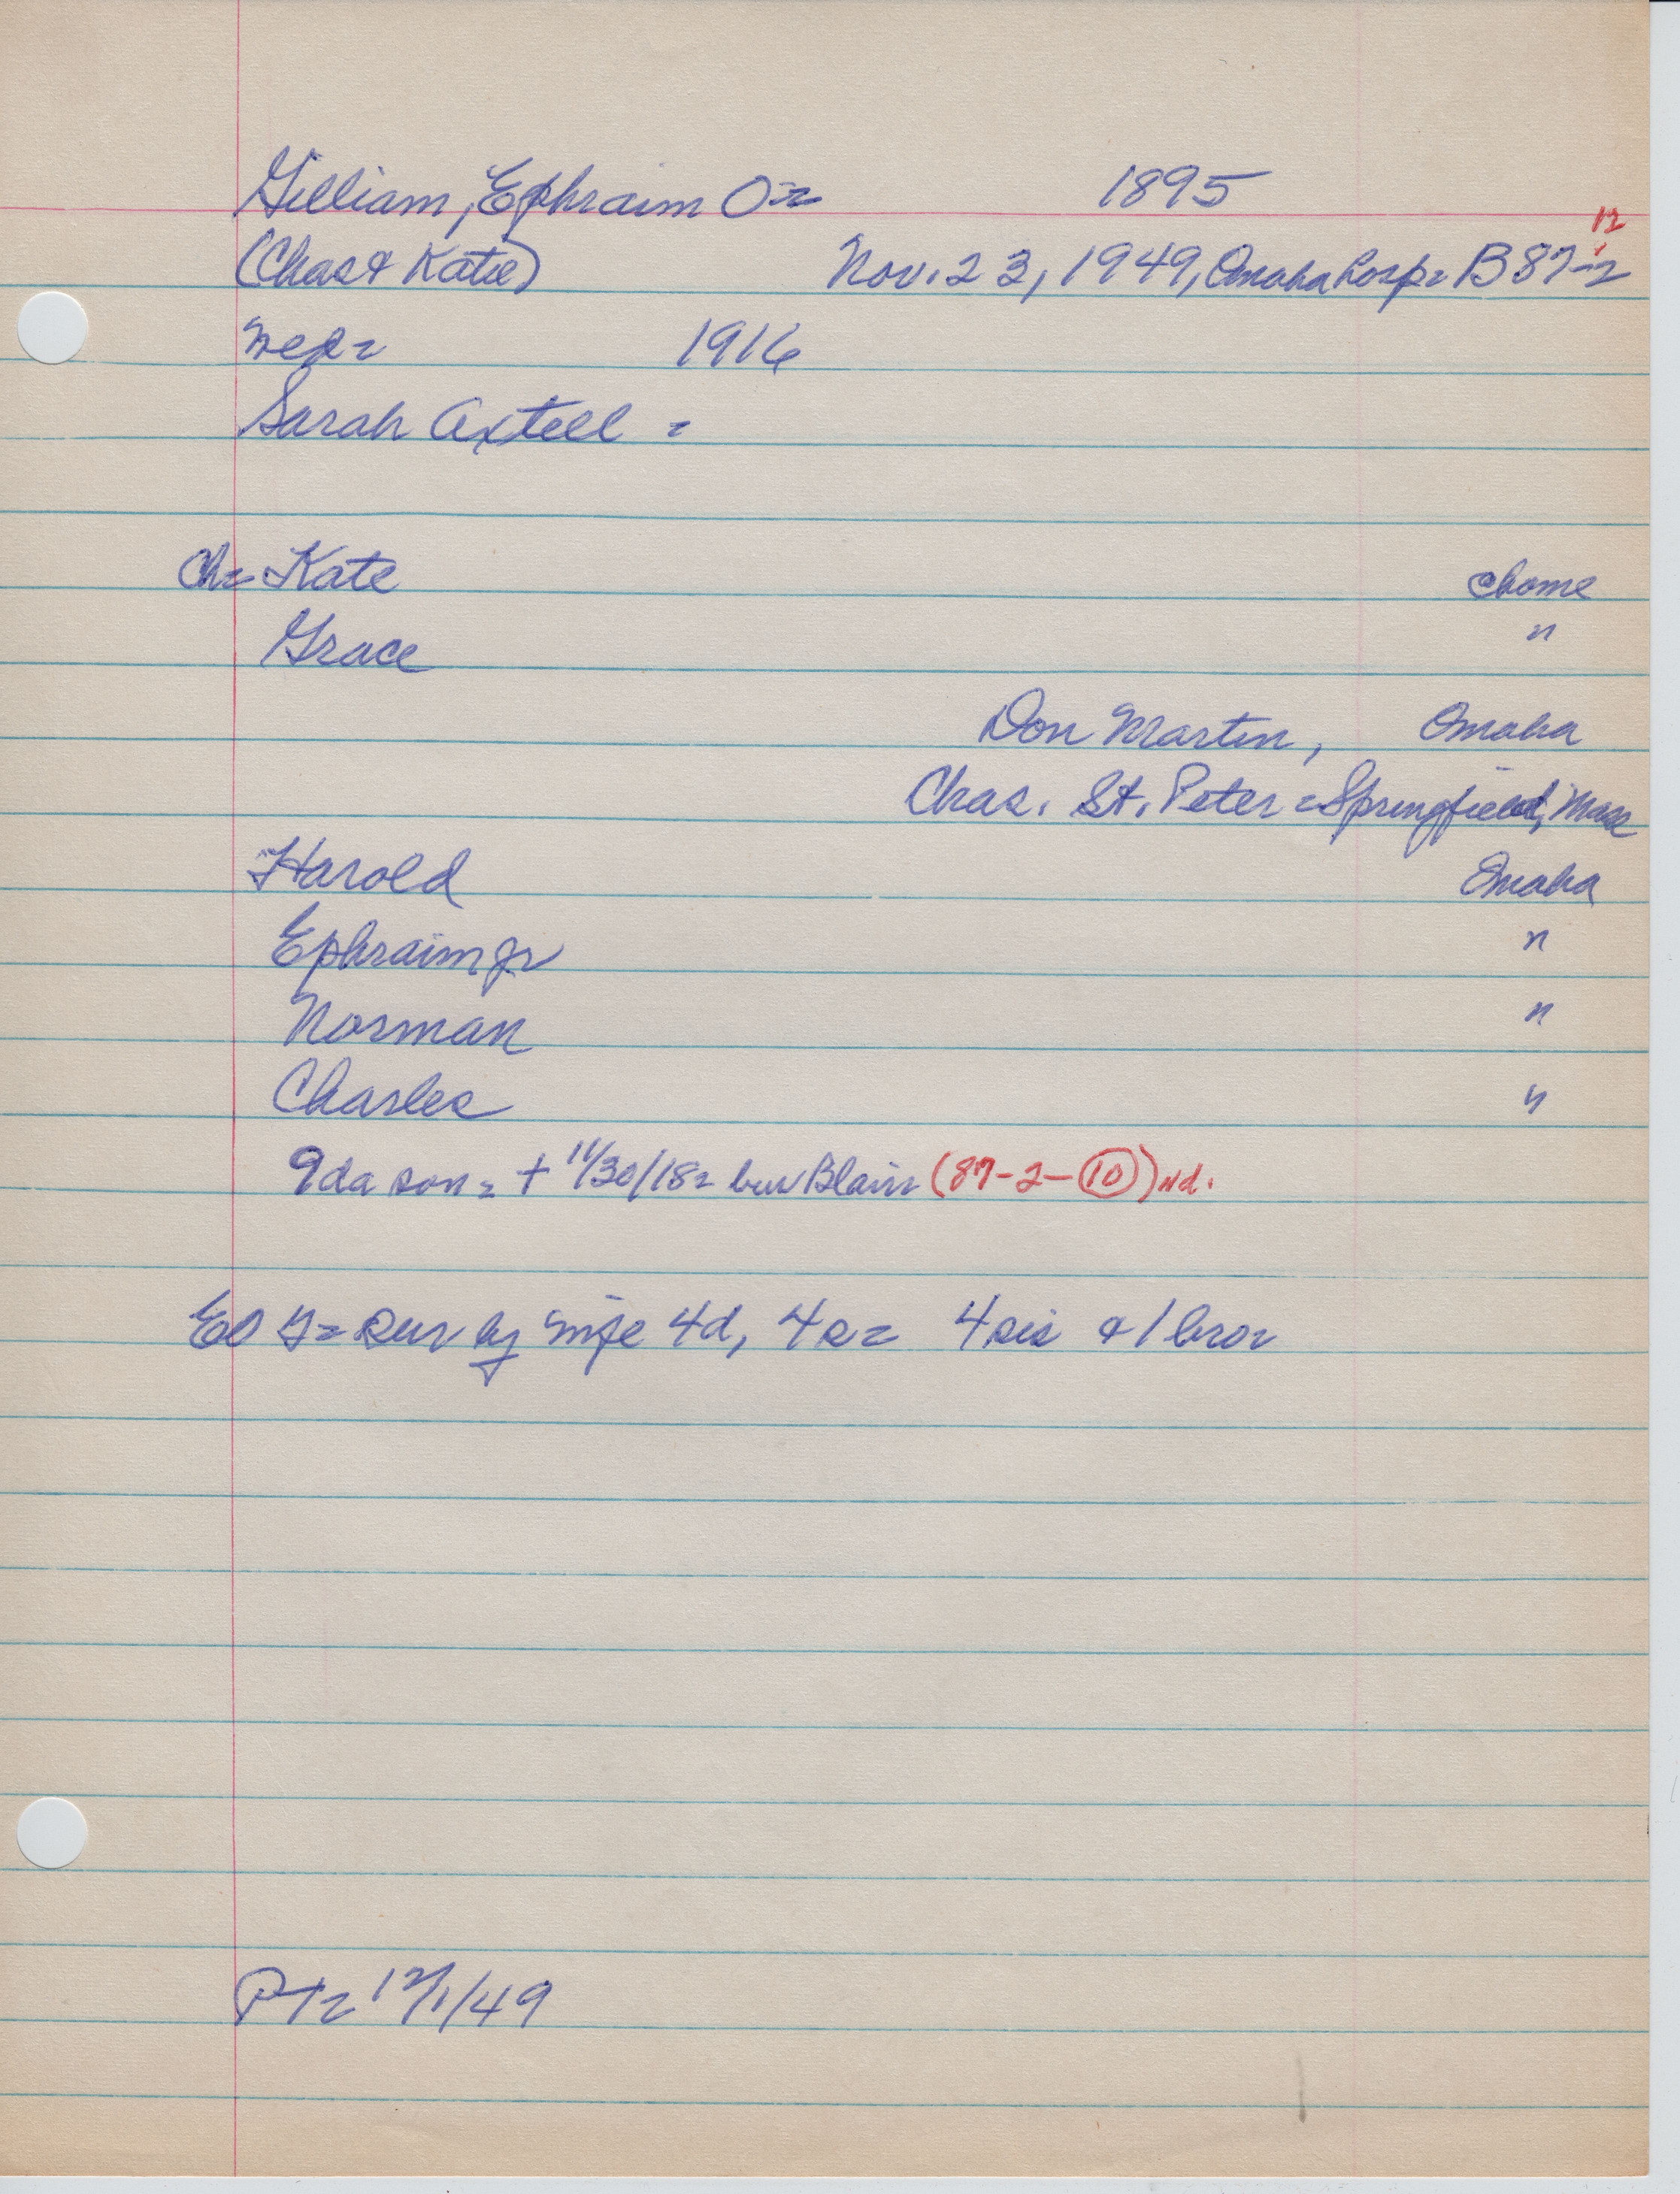 Gilliam, Ephraim O= 1895
12
(Chas & Katie) Nov. 23, 1949, Omaha hosp= B 87-2
1916
Sarah Axtell =
Ch= Kate @home
Grace "
Don Martin, Omaha
Chas. St. Peter = Springfield, Mass
Harold Omaha
Ephraim Jr "
Norman "
Charles "
9da son = + 11/30/18= bur Blair= (87-2-10) nd.
EO G= sur by wife 4d, 4s= 4 sis & 1 bro=
PT= 12/1/49